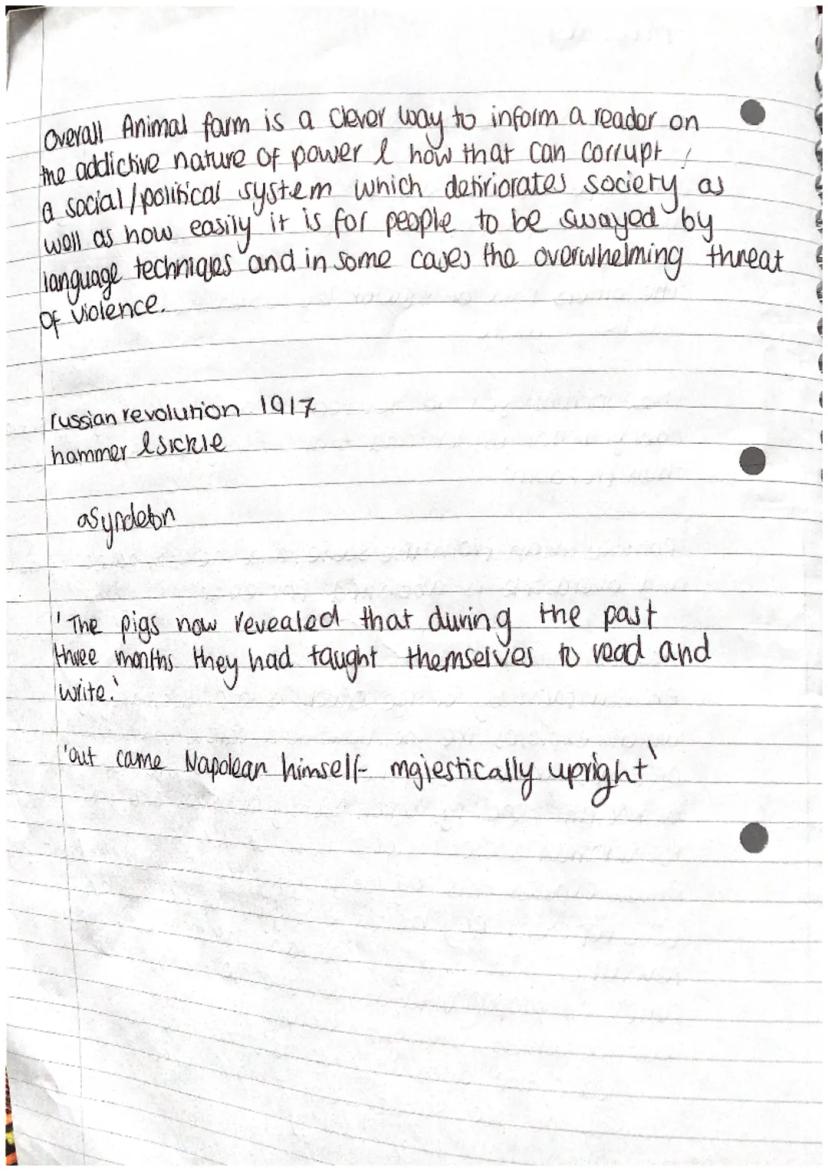 Overall Animal farm is a clever way to inform a reader on
the addictive nature of power & how that can corrupt
a social/political system which detiriorates society as
well as how easily it is for people to be swayed by
language techniqes and in some cases the overwhelming threat
of violence.
russian revolution 1917
hammer & sickle
asyndeton
'The pigs now revealed that during the past
three months they had taught themselves to read and
write.'
'out came Napolean himself- majestically upright'